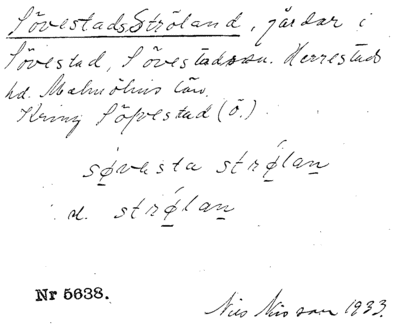 Sövestads Ströland, gårdar i
Sövestad, Sövestads sn. Herrestads
hd. Malmöhus län.
Kring Söpestad (ö.)
søvesta strølan
el. strølan
Nr 5638.
Nils Nilsson 1933.